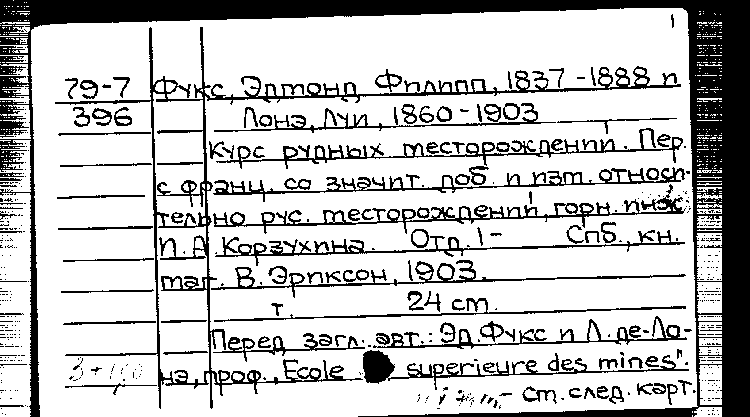 1
79-7 Фукс, Эдмонд Филипп, 1837-1888 и
396 Лонэ, Луи, 1860-1903
Курс рудных месторождений. Пер.
с франц. со значит. доб. и изм. относи-
тельно рус. месторождений, горн. инж.
И. А. Корзухина. Отд. 1- Спб., кн.
маг. В. Эриксон, 1903.
т. 24 cm.
Перед загл. авт.: Эд. Фукс и Л. де-Ло-
нэ, проф. "Ecole superieure des mines".
- см. след. карт.